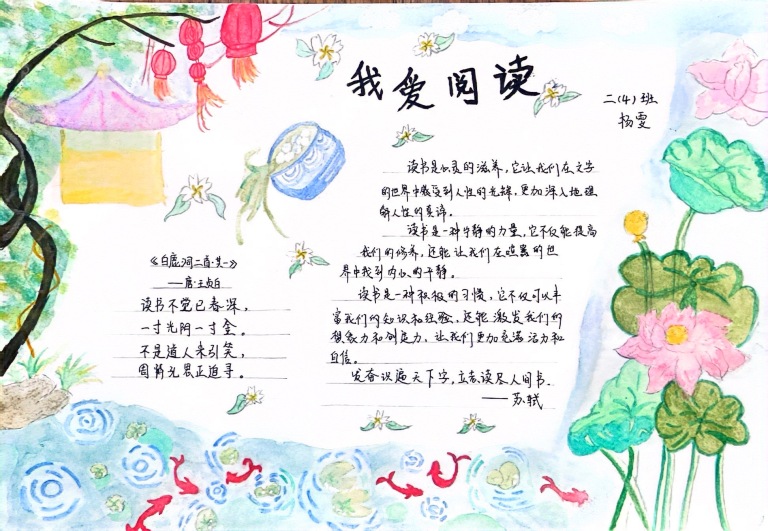 我爱阅读
二(4)班
杨雯
读书是心灵的滋养，它让我们在文字
的世界中感受到人性的光辉，更加深入地理
解人性的真谛。
读书是一种宁静的力量，它不仅能提高
我们的修养，还能让我们在喧嚣的世
界中找到内心的平静。
读书是一种积极的习惯，它不仅可以丰
富我们的知识和经验，还能激发我们的
想象力和创造力，让我们更加充满活力和
自信。
发奋识遍天下字，立志读尽人间书。
——苏轼
《白鹿洞二首·其一》
——唐·王贞白
读书不觉已春深，
一寸光阴一寸金。
不是道人来引笑，
周情孔思正追寻。